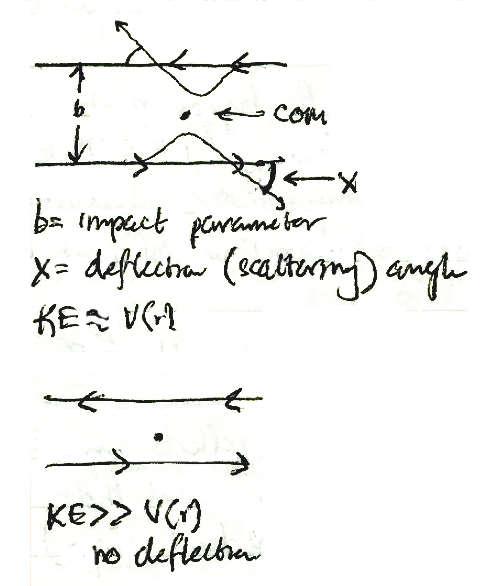 b
← com
← X
b= impact parameter
X= deflection (scattering) angle
KE ≈ V(r)
KE>> V(r)
no deflection